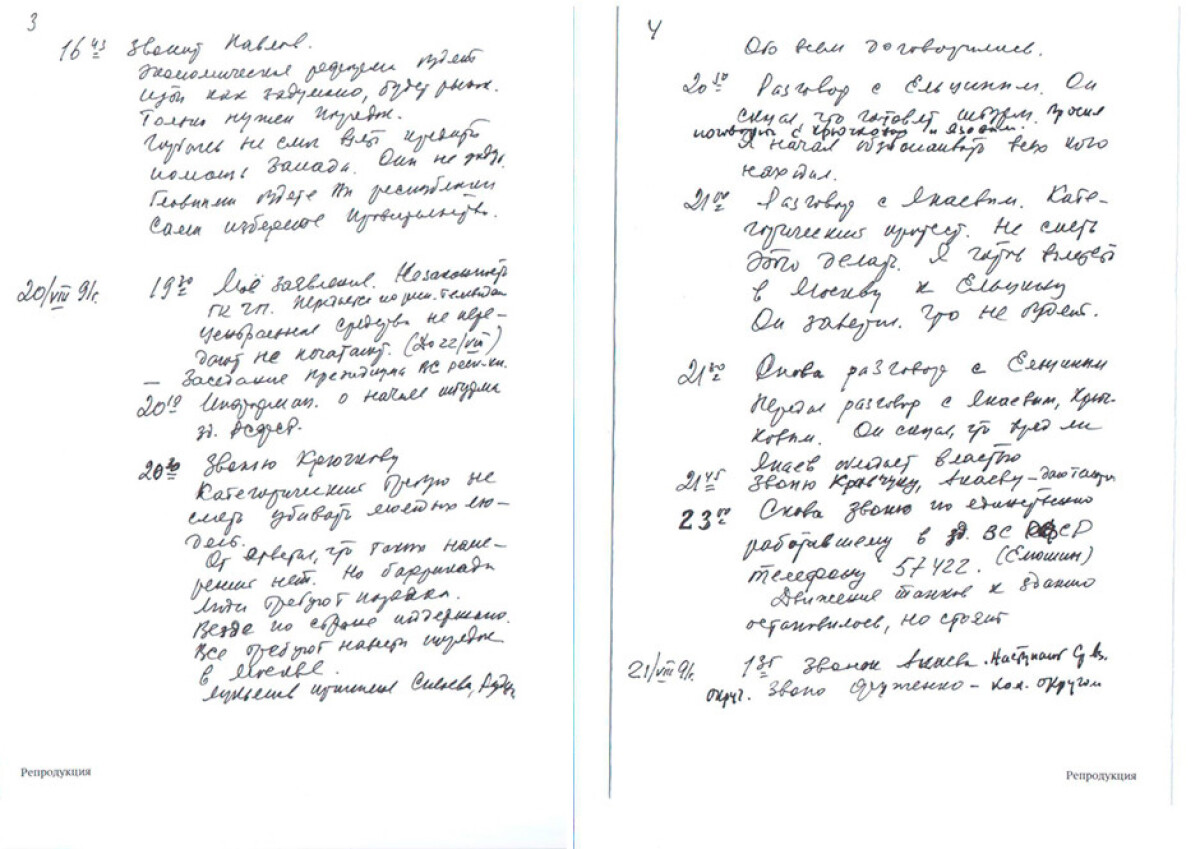 3
16 43 Звонит Павлов.
Экономическая реформа будет
идти как задумано, будет рынок.
Только нужен порядок.
Горбачев не смог взять кредиты
помощь Запада. Они не дадут.
Главными будете Вы республики
Сами изберете правительство.
20/VIII 91г. 19 30 Моё заявление. Незаконность
ГКЧП. Передается по телевидению
Центральные средства не пере-
дают не печатают. (до 22/VIII)
— Заседание Президиума ВС респ-ки.
20 10 Информац. о начале штурма
зд. РСФСР.
20 30 Звоню Крючкову
Категорически требую не
сметь убивать людей.
Он ответил, что таких наме-
рений нет. Но баррикады
Люди требуют порядка.
Везде по стране поддержано.
Все требуют навести порядок
в Москве.
Лукьянов Силаева,
Репродукция
4
Обо всем договорились.
20 50 Разговор с Ельциным. Он
сказал, что готовят штурм. Просил
поговорить с Крючковым и Язовым.
Я начал обзванивать всех кого
находил.
21 00 Разговор с Янаевым. Кате-
горический протест. Не сметь
это делать. Я готов вылететь
в Москву к Ельцину
Он заверил. что не будет.
21 30 Снова разговор с Ельциным
Передал разговор с Янаевым, Крюч-
ковым. Он сказал, что вряд ли
Янаев владеет властью
21 45 Звоню Кравчуку, Акаеву –
23 00 Снова звоню по единственно
работавшему в зд. ВС РСФСР
телефону 57422. (Ельцин)
Движение танков к зданию
остановилось, но стоят
21/VIII 91г. 1 35 Звонок Акаева. Наступают Ср. Аз.
округ. Звоню Фуженко – ком. округом
Репродукция